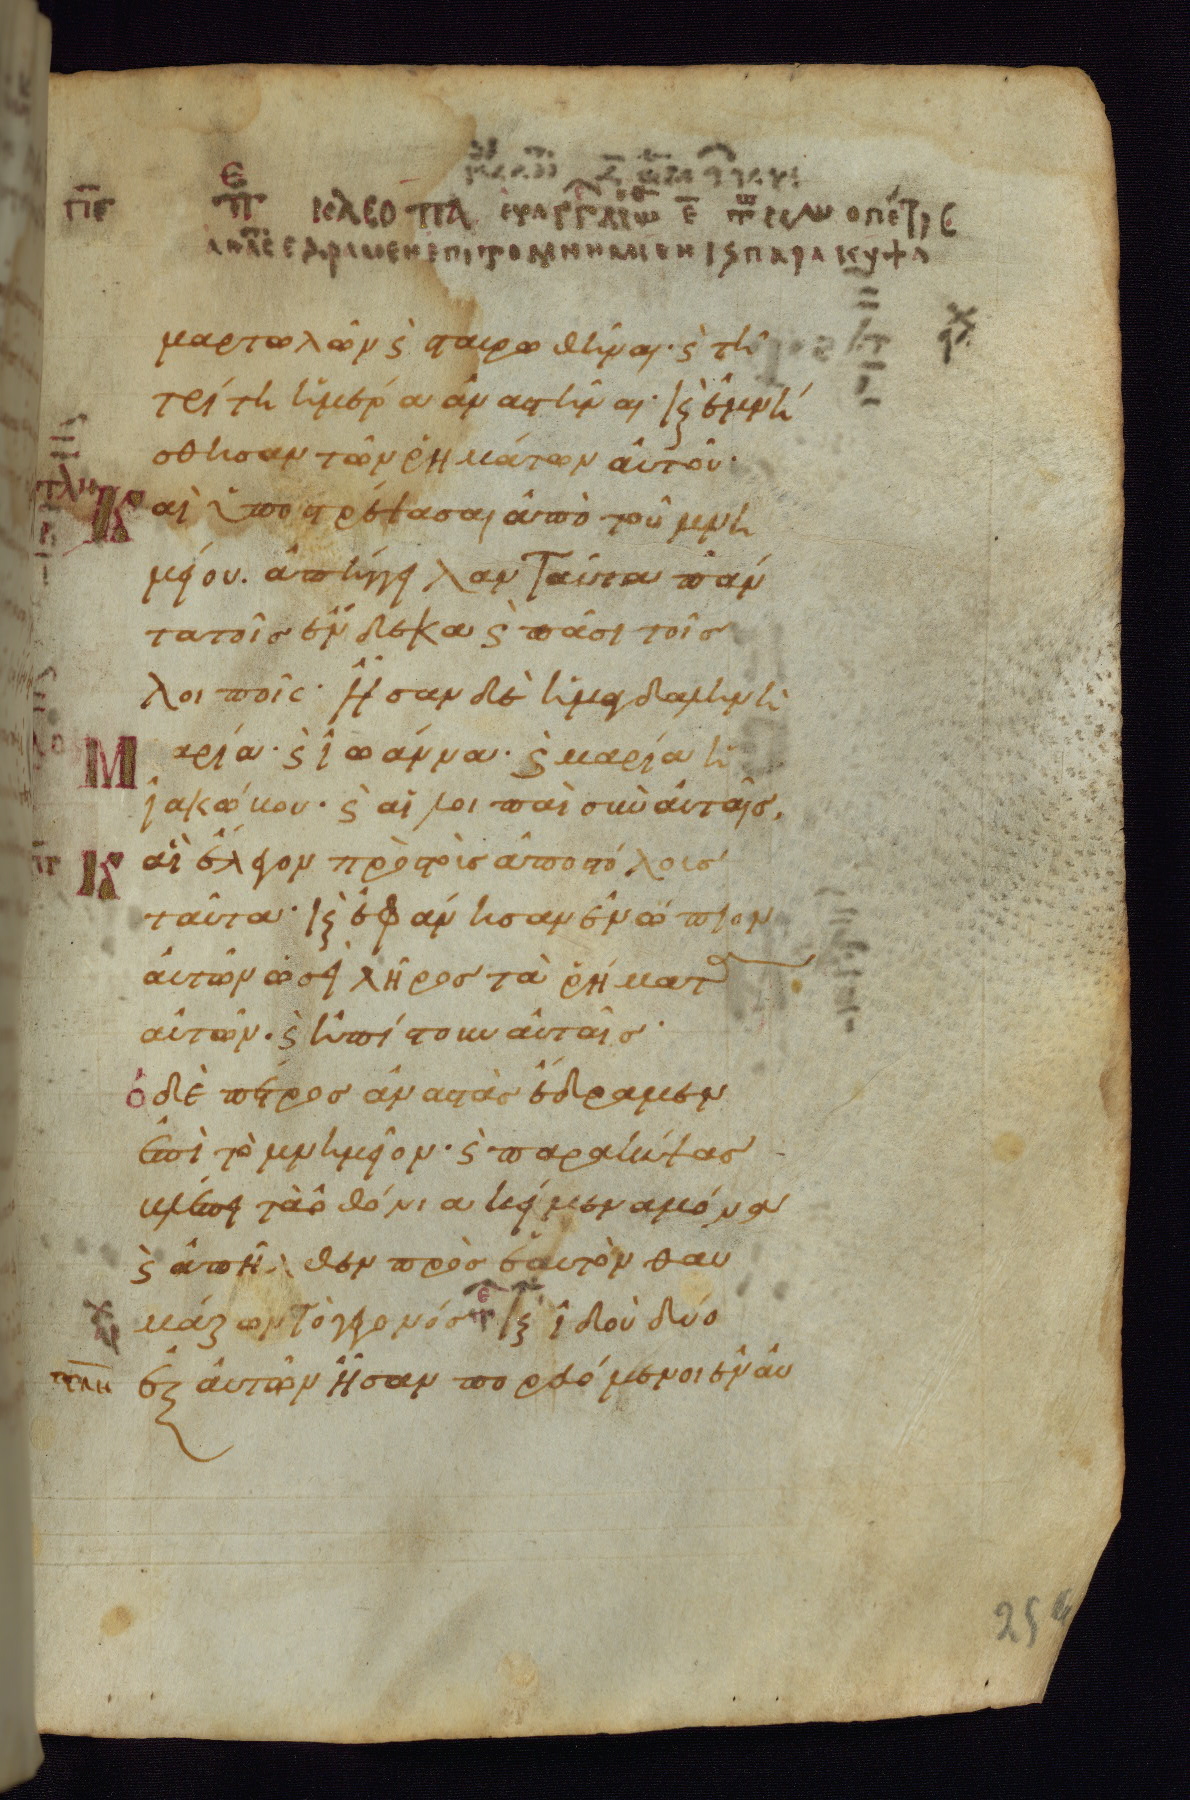 πε π κλεοπα
ανας εδραμεν επι το μνημειον ϗ παρακυψα
μαρτωλῶν ϗ σταυρωθῆναι· ϗ τῆ
τρίτη ἡμέρα ἀναστῆναι· ϗ ἐμνή
σθησαν τῶν ῥημάτων αὐτοῦ·
Καὶ ὑποστρέψασαι ἀπὸ τοῦ μνη
μείου. ἀπήγγειλαν ταῦτα πάν
τα τοῖς ἕνδεκα ϗ πᾶσι τοῖς
λοιποῖς· Ἦσαν δὲ ἡ μαγδαληνὴ
Μαρία· ϗ ἰωάννα· ϗ μαρία ἡ
ἰακώβου· ϗ αἱ λοιπαὶ σὺν αὐταῖς,
Καὶ ἔλεγον πρὸς τοὺς ἀποστόλους
ταῦτα· ϗ ἐφάνησαν ἐνώπιον
αὐτῶν ὡσεὶ λῆρος τὰ ῥήματα
αὐτῶν· ϗ ἠπίστουν αὐταῖς·
ὁ δὲ πέτρος ἀναστὰς ἔδραμεν
ἐπὶ τὸ μνημεῖον· ϗ παρακύψας
βλέπει τὰ ὀθόνια κείμενα μόνα
ϗ ἀπῆλθεν πρὸς ἑαυτὸν θαυ
μάζων τὸ γεγονός ϗ ἰδοὺ δύο
ἐξ αὐτῶν ἦσαν πορευόμενοι ἐν αὐ